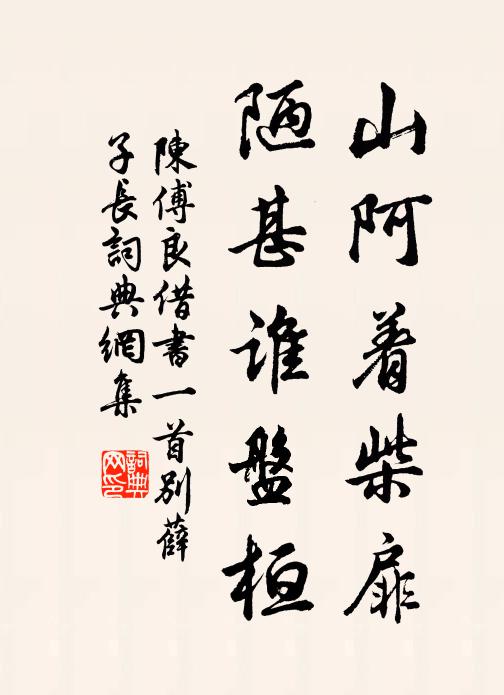 山阿着柴扉
陋甚谁盤桓
陳傅良借書一首别薛
子長詞典網集
詞典
网印